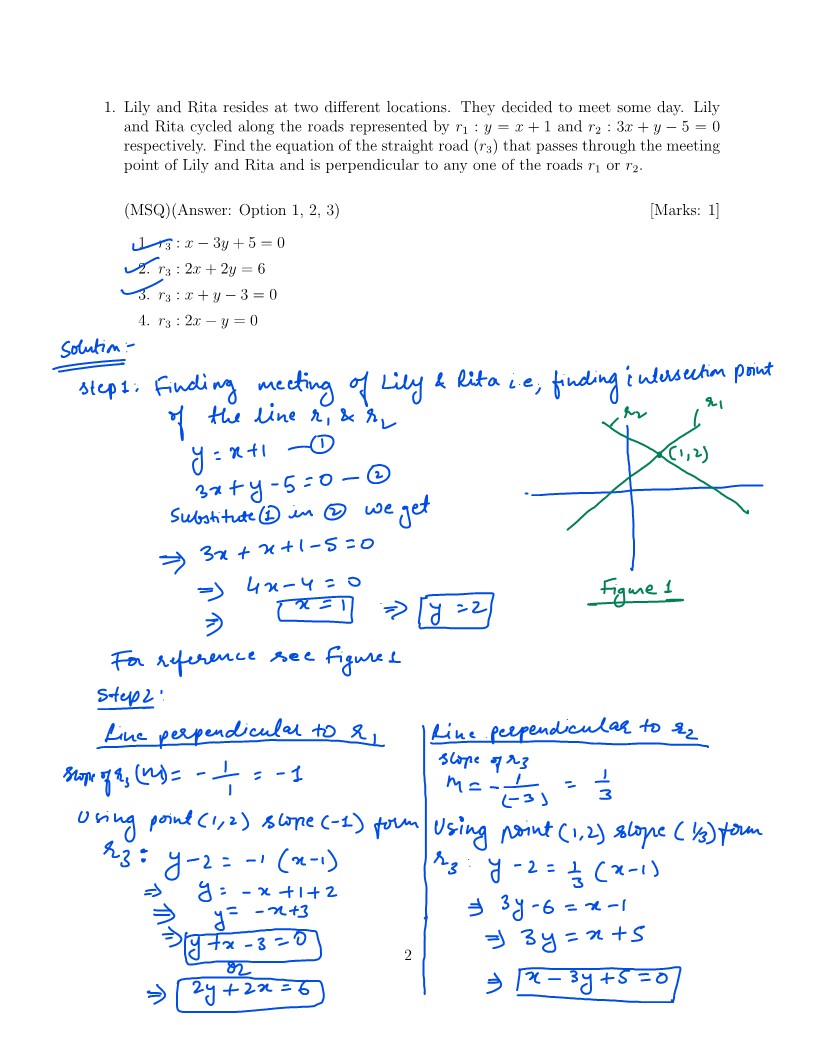 1. Lily and Rita resides at two different locations. They decided to meet some day. Lily
and Rita cycled along the roads represented by r₁ : y = x + 1 and r₂ : 3x + y − 5 = 0
respectively. Find the equation of the straight road (r₃) that passes through the meeting
point of Lily and Rita and is perpendicular to any one of the roads r₁ or r₂.
(MSQ)(Answer: Option 1, 2, 3) [Marks: 1]
1. r₃ : x − 3y + 5 = 0
2. r₃ : 2x + 2y = 6
3. r₃ : x + y − 3 = 0
4. r₃ : 2x − y = 0
Solution:-
Step1: Finding meeting of Lily & Rita i.e, finding intersection point
of the line r₁ & r₂
y = x+1 — ①
3x + y - 5 = 0 — ②
Substitute ① in ② we get
⇒ 3x + x + 1 - 5 = 0
⇒ 4x - 4 = 0
⇒ x = 1 ⇒ y = 2
r₂
r₁
(1,2)
Figure 1
For reference see Figure 1
Step2:
Line perpendicular to r₁
slope of r₃ (m) = - 1/1 = -1
Using point (1,2) slope (-1) form
r₃ : y-2 = -1 (x-1)
⇒ y = -x +1+2
⇒ y = -x+3
⇒ y + x - 3 = 0
or
⇒ 2y + 2x = 6
Line perpendicular to r₂
slope of r₃
m = - 1/(-3) = 1/3
Using point (1,2) slope (1/3) form
r₃ : y - 2 = 1/3 (x-1)
⇒ 3y - 6 = x - 1
⇒ 3y = x + 5
⇒ x - 3y + 5 = 0
2